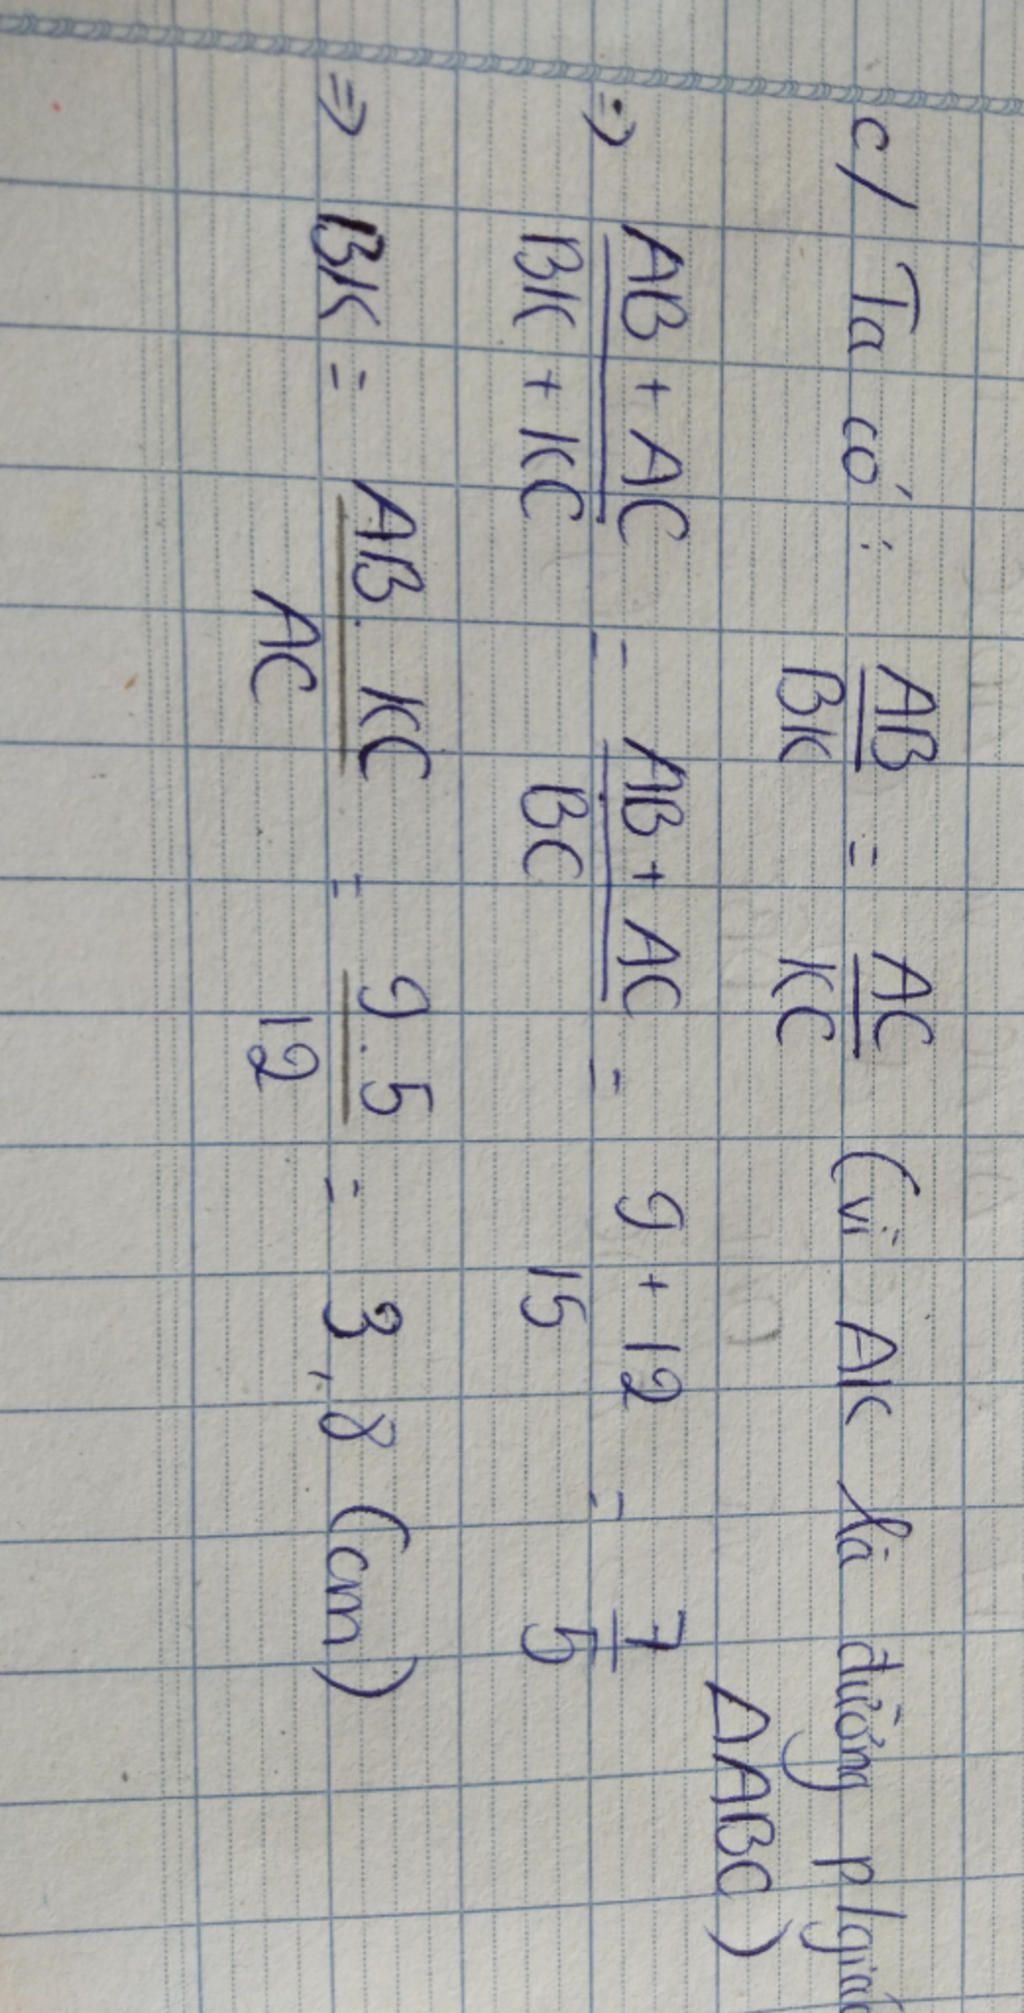 c/ Ta có: AB/BK = AC/KC (vì AK là đường p/giác
ΔABC)
=> AB + AC/BK + KC = AB + AC/BC = 9 + 12/15 = 7/5
=> BK = AB. KC/AC = 9.5/12 = 3,8 (cm)